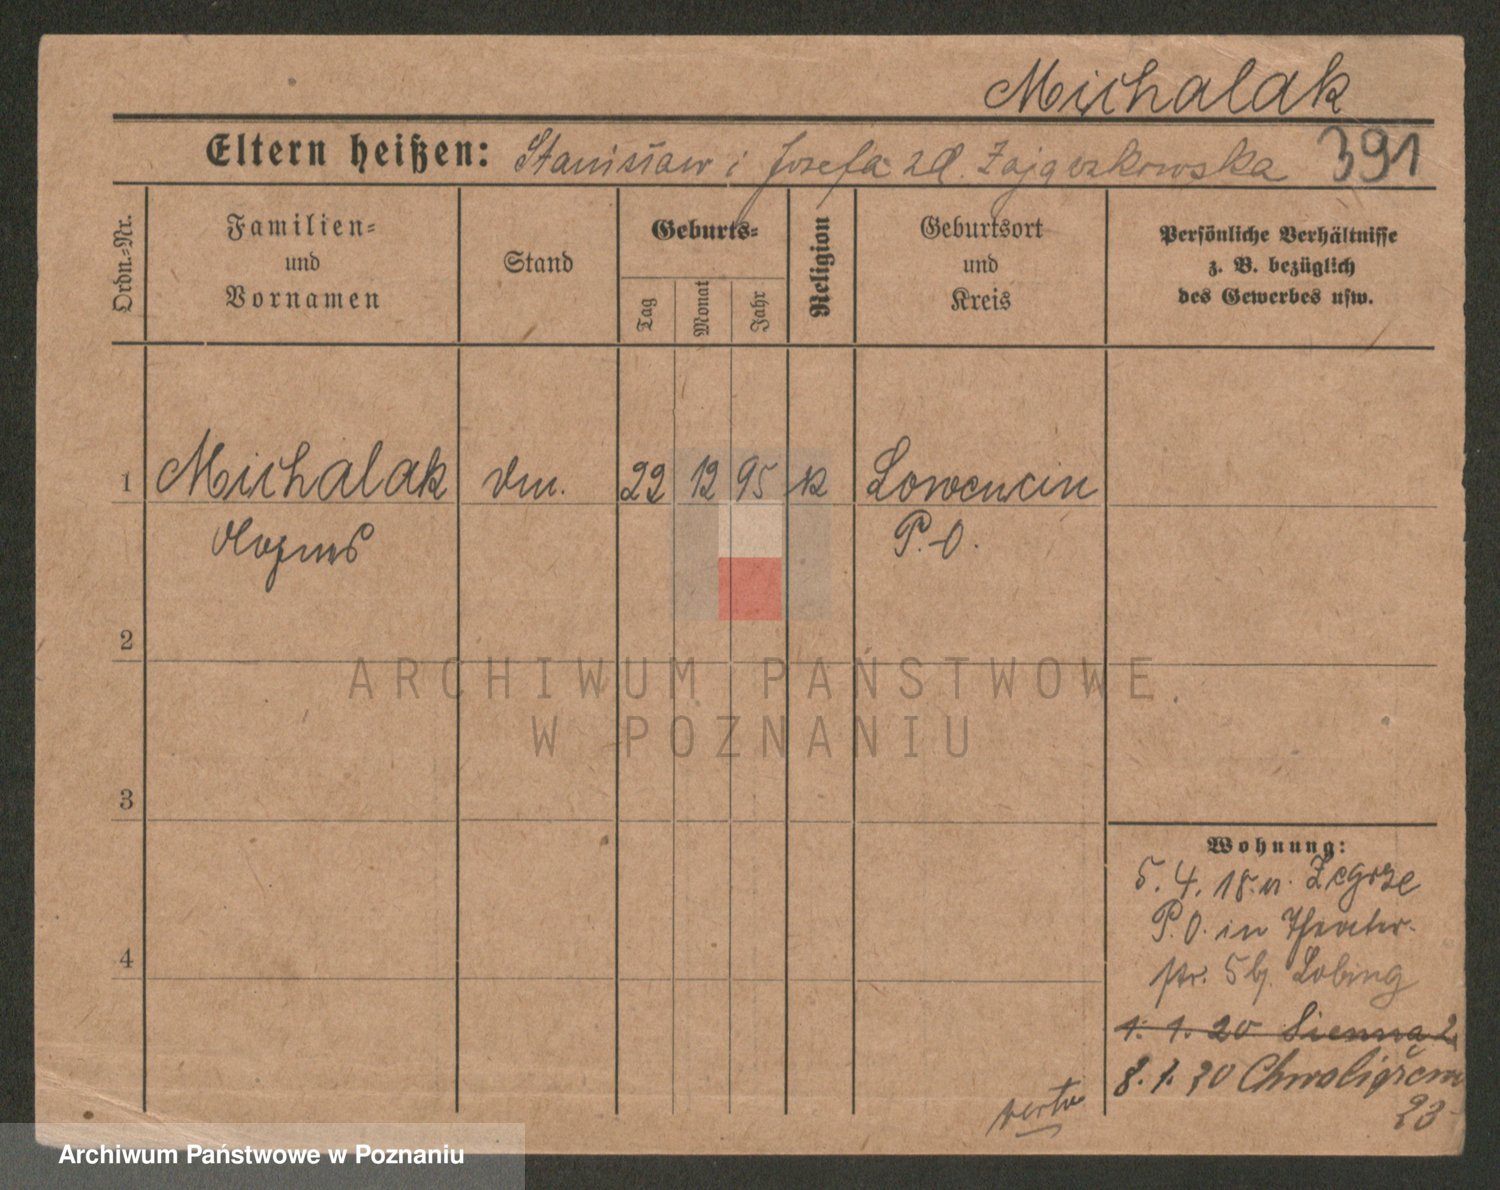 Michalak
Eltern heißen: Stanisław i Josefa zd. Zajączkowska 391
Ordn.-Nr.
Familien-
und
Vornamen
Stand
Geburts-
Tag
Monat
Jahr
Religion
Geburtsort
und
Kreis
Persönliche Verhältnisse
z. B. bezüglich
des Gewerbes usw.
1 Michalak 22 12 95 k Lowencin
P.O.
2
3
4
Wohnung:
5.4.18 v. Zegrze
P.O. in Theater-
str. 5 b. Lobing
1.1.20 Sienna 2
8.1.20
23
verte
ARCHIWUM PAŃSTWOWE
W POZNANIU
Archiwum Państwowe w Poznaniu